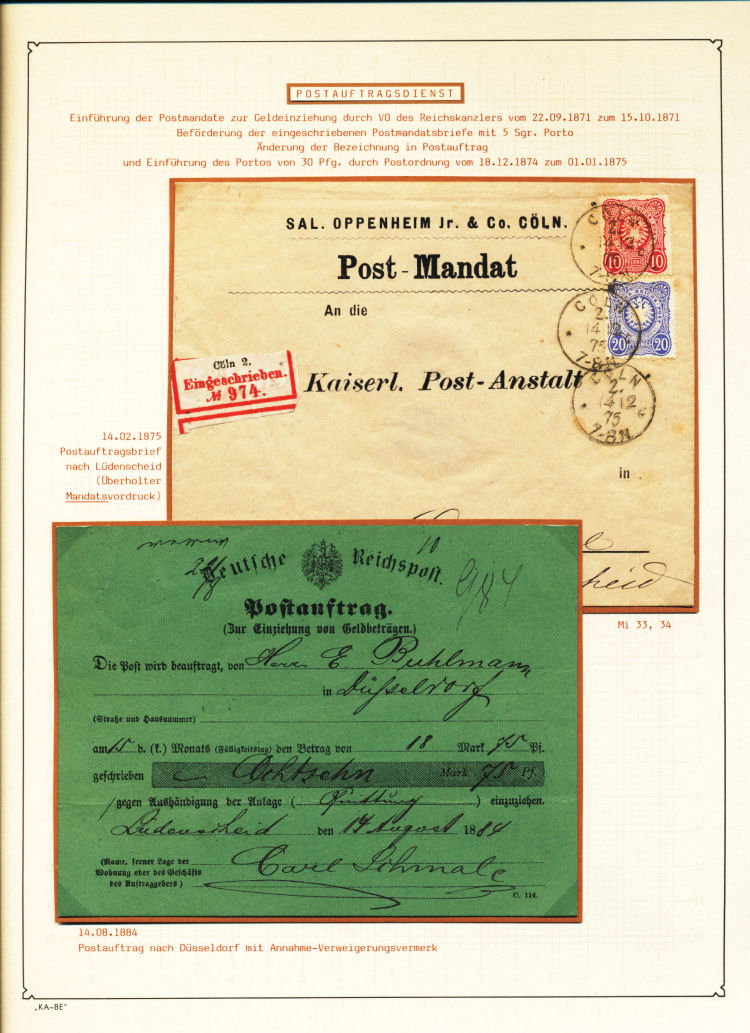 POSTAUFTRAGSDIENST
Einführung der Postmandate zur Geldeinziehung durch VO des Reichskanzlers vom 22.09.1871 zum 15.10.1871
Beförderung der eingeschriebenen Postmandatsbriefe mit 5 Sgr. Porto
Änderung der Bezeichnung in Postauftrag
und Einführung des Portos von 30 Pfg. durch Postordnung vom 18.12.1874 zum 01.01.1875
SAL. OPPENHEIM Jr. & Co. CÖLN.
Post-Mandat
An die
Kaiserl. Post-Anstalt
in
10 PFENNIG 10
20 20
CÖLN
2.
14 12
75
7-8N
CÖLN
2.
14 12
75
7-8N
Cöln 2.
Eingeschrieben.
№ 974.
14.02.1875
Postauftragsbrief
nach Lüdenscheid
(Überholter
Mandatsvordruck)
heid
Mi 33, 34
10
984
Deutsche Reichspost.
Postauftrag.
(Zur Einziehung von Geldbeträgen.)
Die Post wird beauftragt, von Herrn E. Buhlmann
in Düsseldorf
(Straße und Hausnummer)
am 15 d. (k.) Monats (Fälligkeitstag) den Betrag von 18 Mark 75 Pf.
geschrieben Achtzehn Mark 75 Pf.
gegen Aushändigung der Anlage ( Quittung ) einzuziehen.
Lüdenscheid den 14 August 1884
(Name, ferner Lage der
Wohnung oder des Geschäfts
des Auftraggebers)
Carl Schmale
C. 114.
14.08.1884
Postauftrag nach Düsseldorf mit Annahme-Verweigerungsvermerk
„KA-BE"